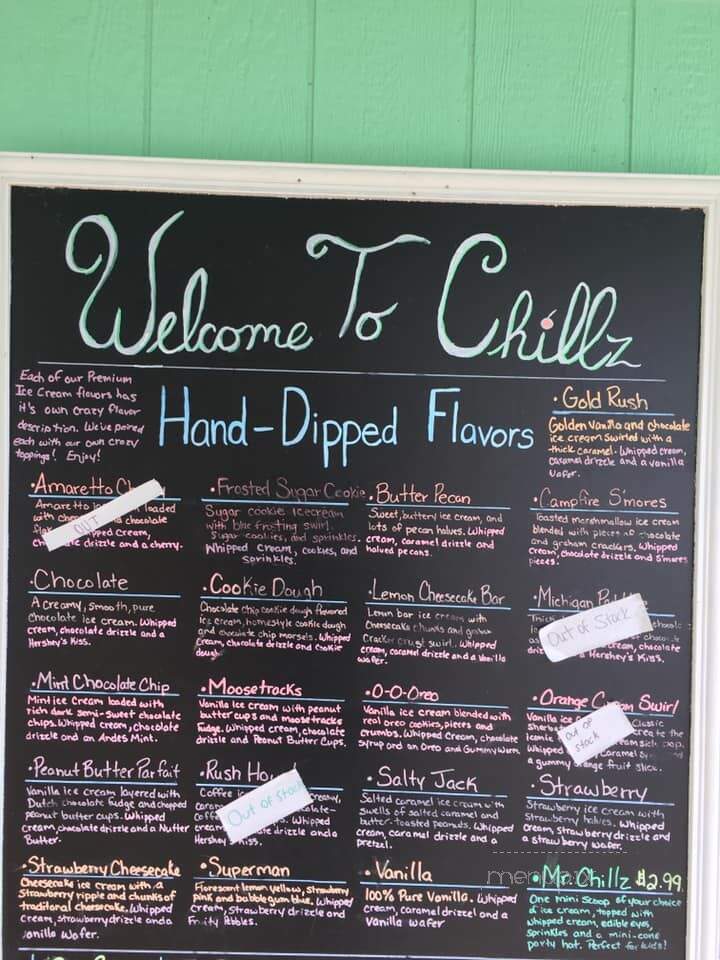 Welcome To Chillz
Each of our Premium
Ice Cream flavors has
it's own crazy flavor
description. We've paired
each with our own crazy
toppings! Enjoy!
Hand-Dipped Flavors
• Gold Rush
Golden Vanilla and chocolate
ice cream swirled with a
thick caramel. Whipped cream,
caramel drizzle and a vanilla
wafer.
• Amaretto
OUT
Amaretto loaded
with chocolate
cream,
drizzle and a cherry.
• Frosted Sugar Cookie
Sugar cookie icecream
with blue frosting swirl.
Sugar cookies, and sprinkles.
Whipped cream, cookies, and
sprinkles.
• Butter Pecan
Sweet, buttery ice cream, and
lots of pecan halves. Whipped
cream, caramel drizzle and
halved pecans.
• Campfire S'mores
Toasted marshmallow ice cream
blended with pieces of chocolate
and graham crackers. Whipped
cream, chocolate drizzle and S'mores
pieces.
• Chocolate
A creamy, smooth, pure
chocolate ice cream. Whipped
cream, chocolate drizzle and a
Hershey's Kiss.
• Cookie Dough
Chocolate chip cookie dough flavored
Ice cream, homestyle cookie dough
and chocolate chip morsels. Whipped
cream, chocolate drizzle and cookie
dough
• Lemon Cheesecake Bar
Lemon bar ice cream with
Cheesecake chunks and graham
Cracker crust swirl. Whipped
cream, caramel drizzle and a Vanilla
wafer.
• Michigan
Out of Stock
Thick
cream, chocolate
Hershey's Kiss.
• Mint Chocolate Chip
Mint ice Cream loaded with
rich dark semi-sweet chocolate
chips. Whipped cream, chocolate
drizzle and an Andes Mint.
• Moosetracks
Vanilla ice cream with peanut
butter cups and moosetracks
fudge. Whipped cream, chocolate
drizzle and Peanut Butter Cups.
• O-O-Oreo
Vanilla ice cream blended with
real oreo cookies, pieces and
crumbs. Whipped Cream, chocolate
syrup and an Oreo and Gummyworm
• Orange Cream Swirl
out of
stock
Vanilla ice
Classic
iconic create the
Whipped Caramel
a gummy orange fruit slice.
• Peanut Butter Parfait
Vanilla ice cream layered with
Dutch chocolate fudge and chopped
peanut butter cups. Whipped
cream, chocolate drizzle and a Nutter
Butter.
• Rush
Out of Stock
Coffee creamy,
Whipped
cream drizzle and a
Hershey Kiss.
• Salty Jack
Salted caramel ice cream with
swells of salted caramel and
butter-toasted peanuts. Whipped
cream, caramel drizzle and a
pretzel.
• Strawberry
Strawberry ice cream with
Strawberry halves. Whipped
Cream, strawberry drizzle and
a straw berry wafer.
• Strawberry Cheesecake
Cheesecake ice cream with a
Strawberry ripple and chunks of
traditional cheesecake. Whipped
cream, strawberry drizzle and a
vanilla Wafer.
• Superman
Florescent lemon yellow, strawberry
pink and babble gum blue. Whipped
cream, strawberry drizzle and
Fruity Pebbles.
• Vanilla
100% Pure Vanilla. Whipped
cream, caramel drizzel and a
Vanilla wafer
• Mr. Chillz $2.99
One mini Scoop of your choice
of ice cream, topped with
whipped cream, edible eyes,
sprinkles and a mini-cone
party hat. Perfect for kids!